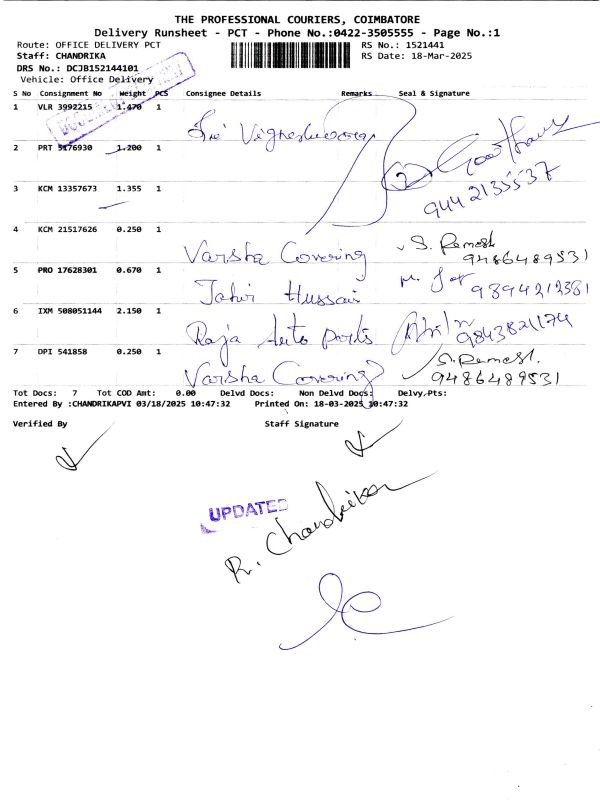 THE PROFESSIONAL COURIERS, COIMBATORE
Delivery Runsheet - PCT - Phone No.:0422-3505555 - Page No.:1
Route: OFFICE DELIVERY PCT RS No.: 1521441
Staff: CHANDRIKA RS Date: 18-Mar-2025
DRS No.: DCJB152144101
Vehicle: Office Delivery
S No Consignment No Weight PCS Consignee Details Remarks Seal & Signature
1 VLR 3992215 1.470 1 Sri Vigneshwara
2 PRT 5176930 1.200 1 2
3 KCM 13357673 1.355 1 9442135537
4 KCM 21517626 0.250 1 Varsha Covering S. Ramesh
9486489531
5 PRO 17628301 0.670 1 Tahir Hussain 9394212381
6 IXM 508051144 2.150 1 Raja Auto parts 9843821174
7 DPI 541858 0.250 1 Varsha Covering S. Ramesh.
9486489531
Tot Docs: 7 Tot COD Amt: 0.00 Delvd Docs: Non Delvd Docs: Delvy.Pts:
Entered By :CHANDRIKAPVI 03/18/2025 10:47:32 Printed On: 18-03-2025 10:47:32
Verified By Staff Signature
UPDATED
R. Chandrika